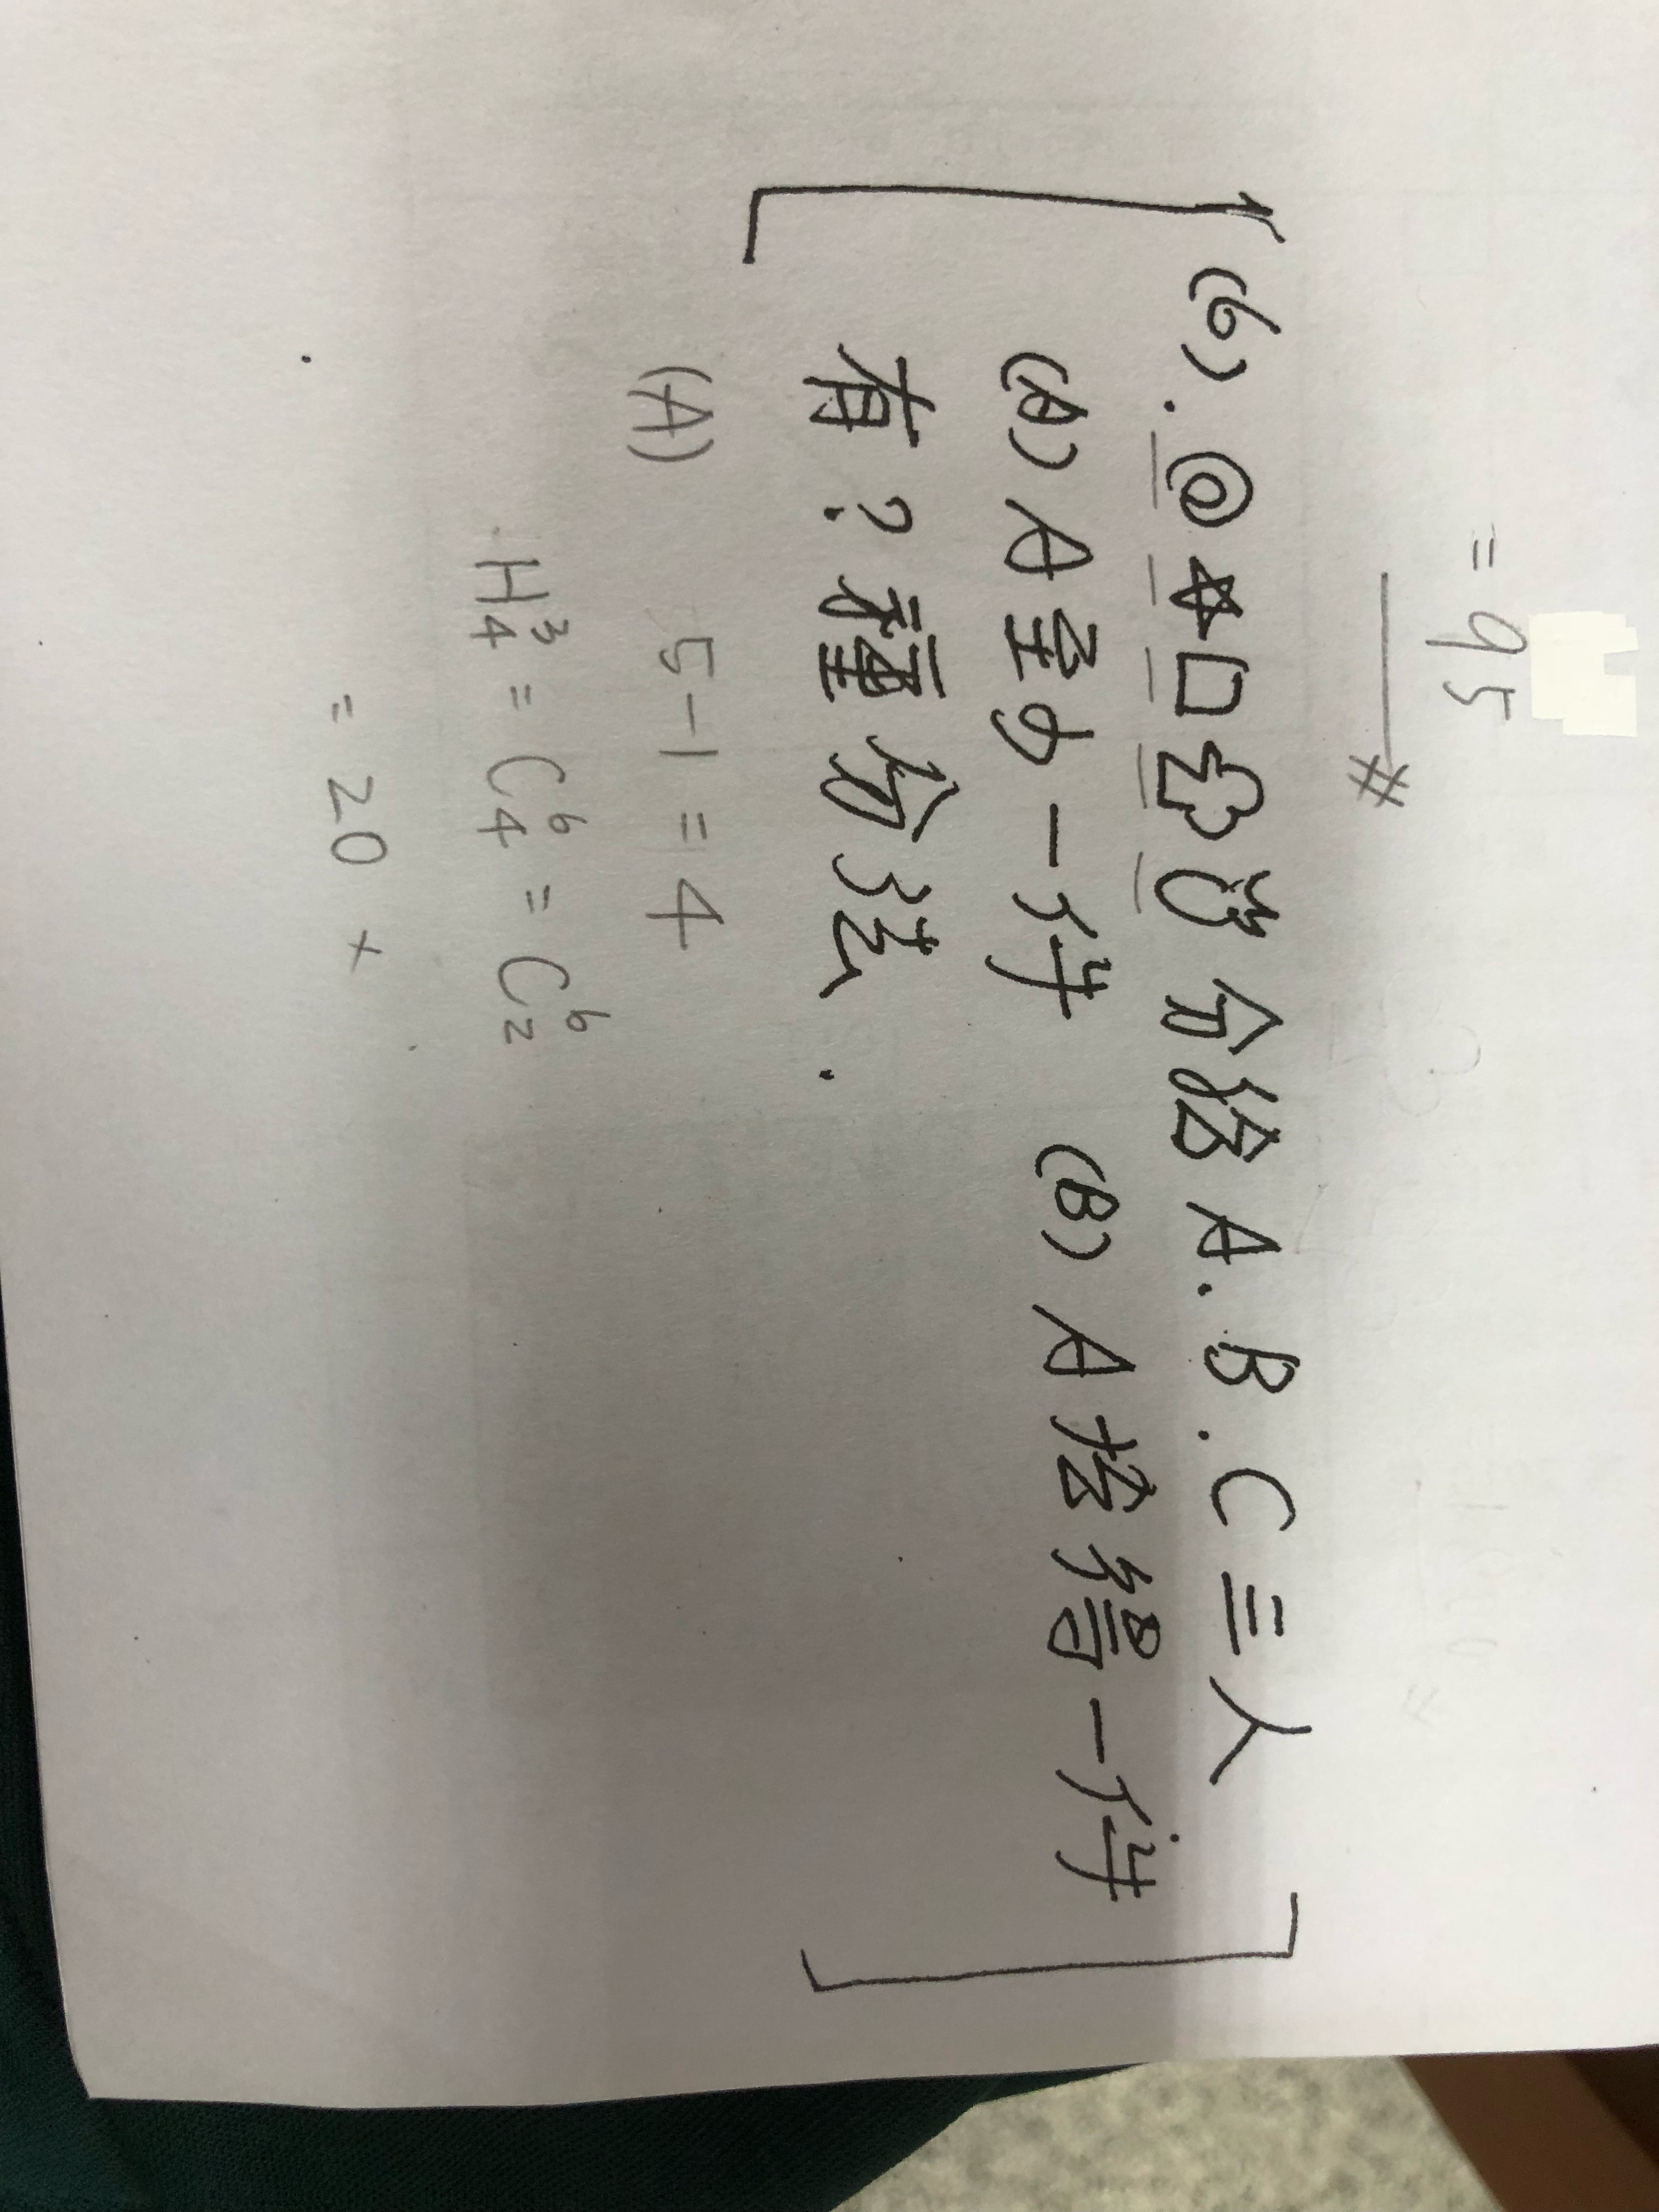 = 95
#
(6). ◎☆□分給 A. B. C 三人
(A) A 至少一件 (B) A 恰得一件
有?種分法.
(A) 5-1=4
H³₄ = C⁶₄ = C⁶₂
= 20 ×